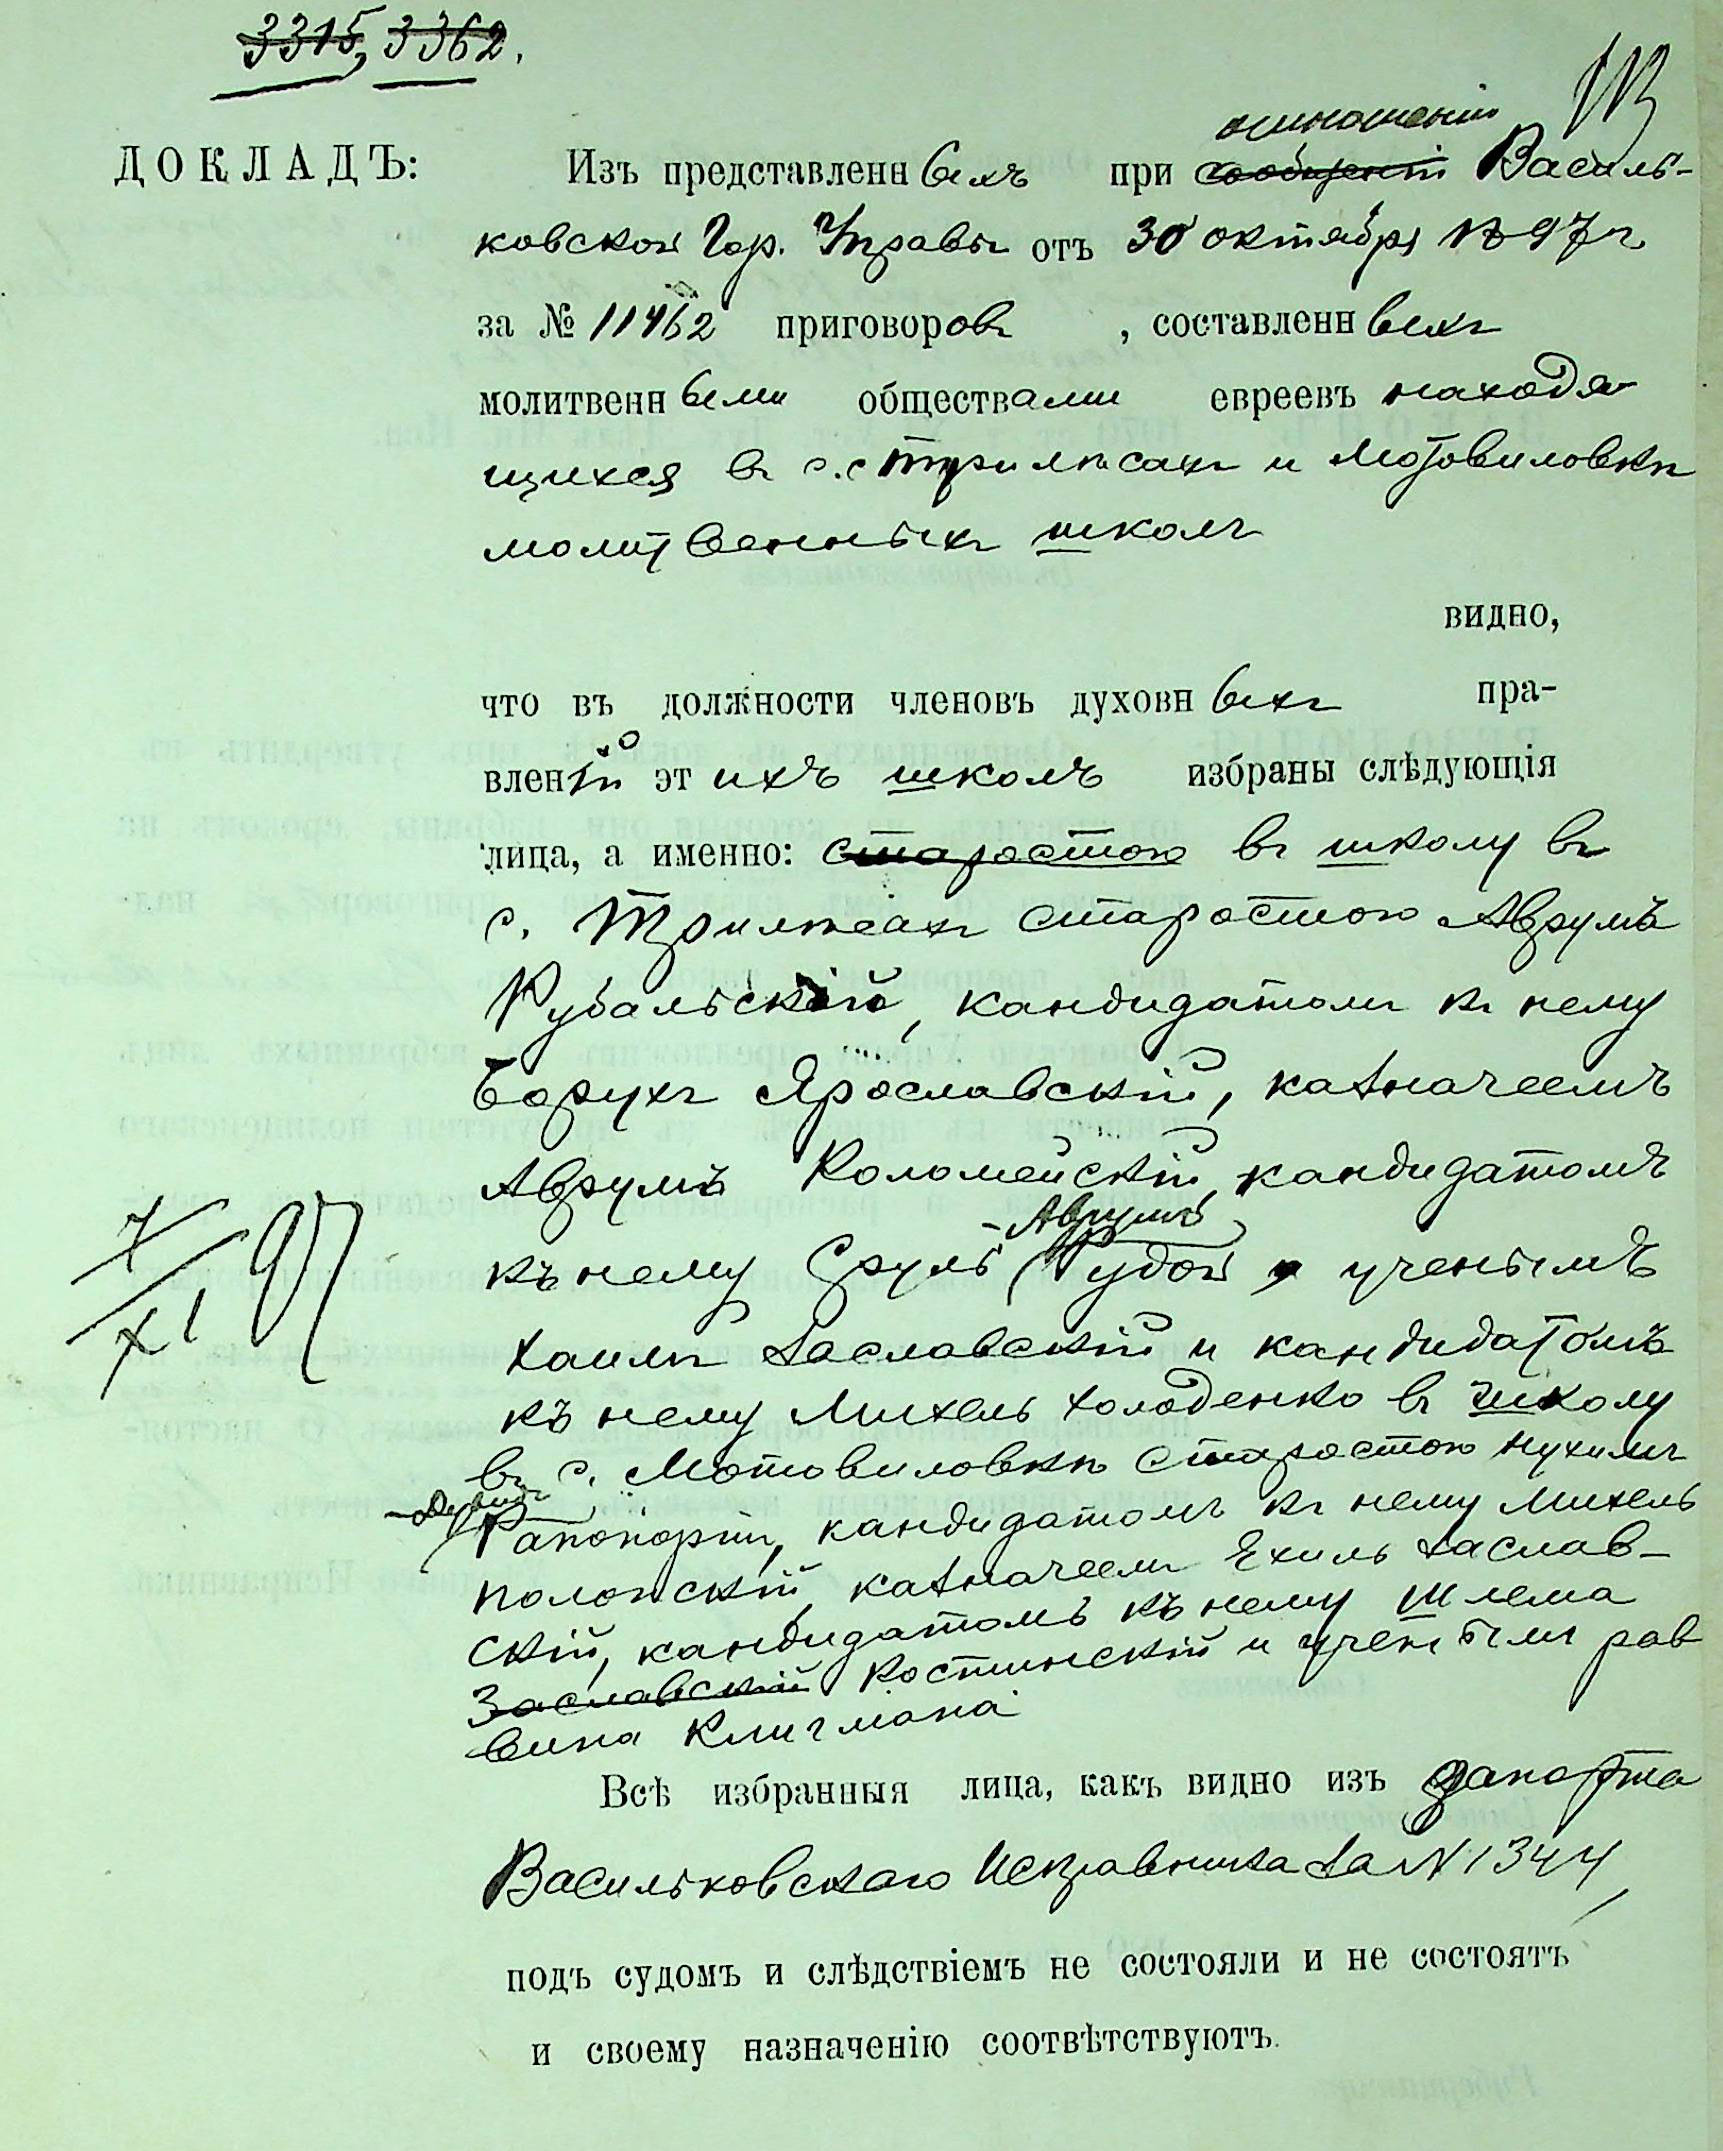 3315, 3362.
отношеніи
ДОКЛАДЪ: Изъ представленныхъ при сообщеніи Василь-
ковской Гор. Управы отъ 30 октября 1897 г.
за № 11462 приговоровъ, составленныхъ
молитвенными обществами евреевъ находя
щихся въ с.с Трилѣсахъ и Мотовиловкѣ
молитвенныхъ школъ
видно,
что въ должности членовъ духовныхъ пра-
вленій этихъ школъ избраны слѣдующія
лица, а именно: старостою въ школу въ
с. Трилѣсахъ старостою Аврумъ
Рубальскій, кандидатомъ къ нему
Борухъ Ярославскій, казначеемъ
Аврумъ Коломейскій, кандидатомъ
-Аврумъ
къ нему Сруль Рудой, ученымъ
Хаимъ Заславскій и кандидатомъ
къ нему Михель Холоденко въ школу
въ с. Мотовиловкѣ старостою Нухимъ
Рапопортъ, кандидатомъ къ нему Михель
Полонскій, казначеемъ Ехиль Заслав-
скій, кандидатомъ къ нему Шлема
Заславскій Костинскій и ученымъ рав
вина Клигмана
7/XI 97
Всѣ избранныя лица, какъ видно изъ рапорта
Васильковскаго Исправника за № 1344
подъ судомъ и слѣдствіемъ не состояли и не состоятъ
и своему назначенію соотвѣтствуютъ.